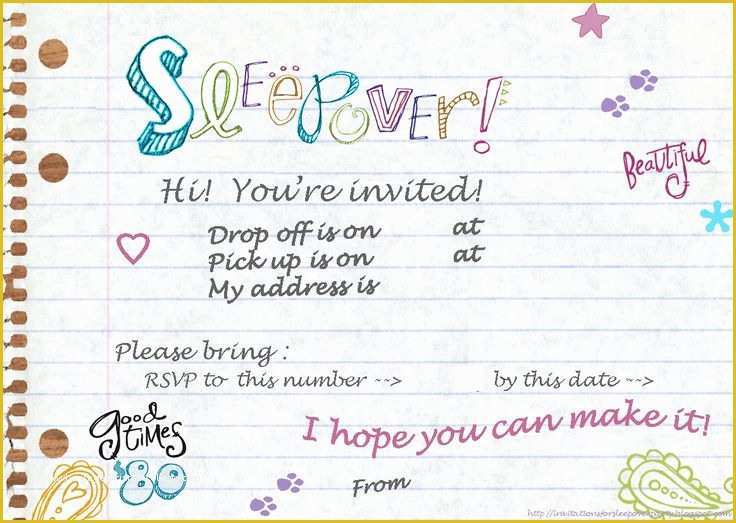 SLEEPOVER!
Beautiful
Hi! You're invited!
Drop off is on at
Pick up is on at
My address is
Please bring :
RSVP to this number ~~> by this date ~~>
good times '80
I hope you can make it!
From